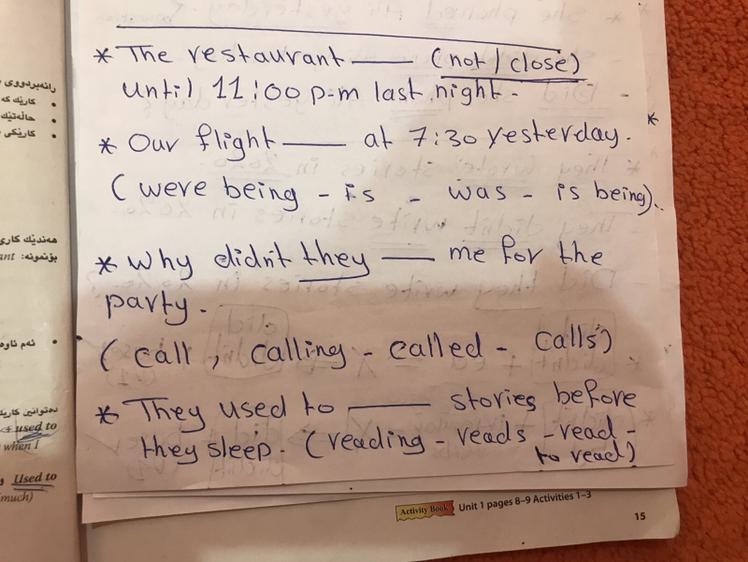 * The restaurant ___ (not / close)
until 11:00 p.m last night.
* Our flight ___ at 7:30 yesterday.
(were being - is - was - is being).
* Why didn't they ___ me for the
party.
(call, calling - called - calls)
* They used to ___ stories before
they sleep. (reading - reads - read -
to read)
Activity Book Unit 1 pages 8–9 Activities 1–3
15
ڕانەبردووی
کارێک کە
حاڵەتێک
کارێکی
هەندێک کاری
بۆنموونە:
ئەم
دەتوانین
+ used to
when I
Used to
much)